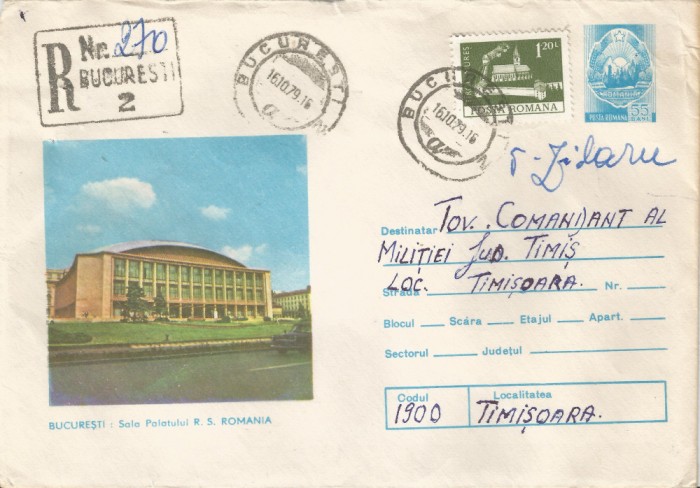 R Nr. 270
BUCUREȘTI
2
BUCUREȘTI
16.10.79.16
a
BUCUREȘTI
16.10.79.16
a
1,20L
POSTA ROMANA
55
POSTA ROMANA
Destinatar Tov. COMANDANT AL
MILIȚIEI Jud. TIMIȘ
LOC. TIMIȘOARA.
Strada Nr.
Blocul Scára Etajul Apart.
Sectorul Județul
Codul Localitatea
1900 TIMIȘOARA.
BUCUREȘTI : Sala Palatului R. S. ROMANIA